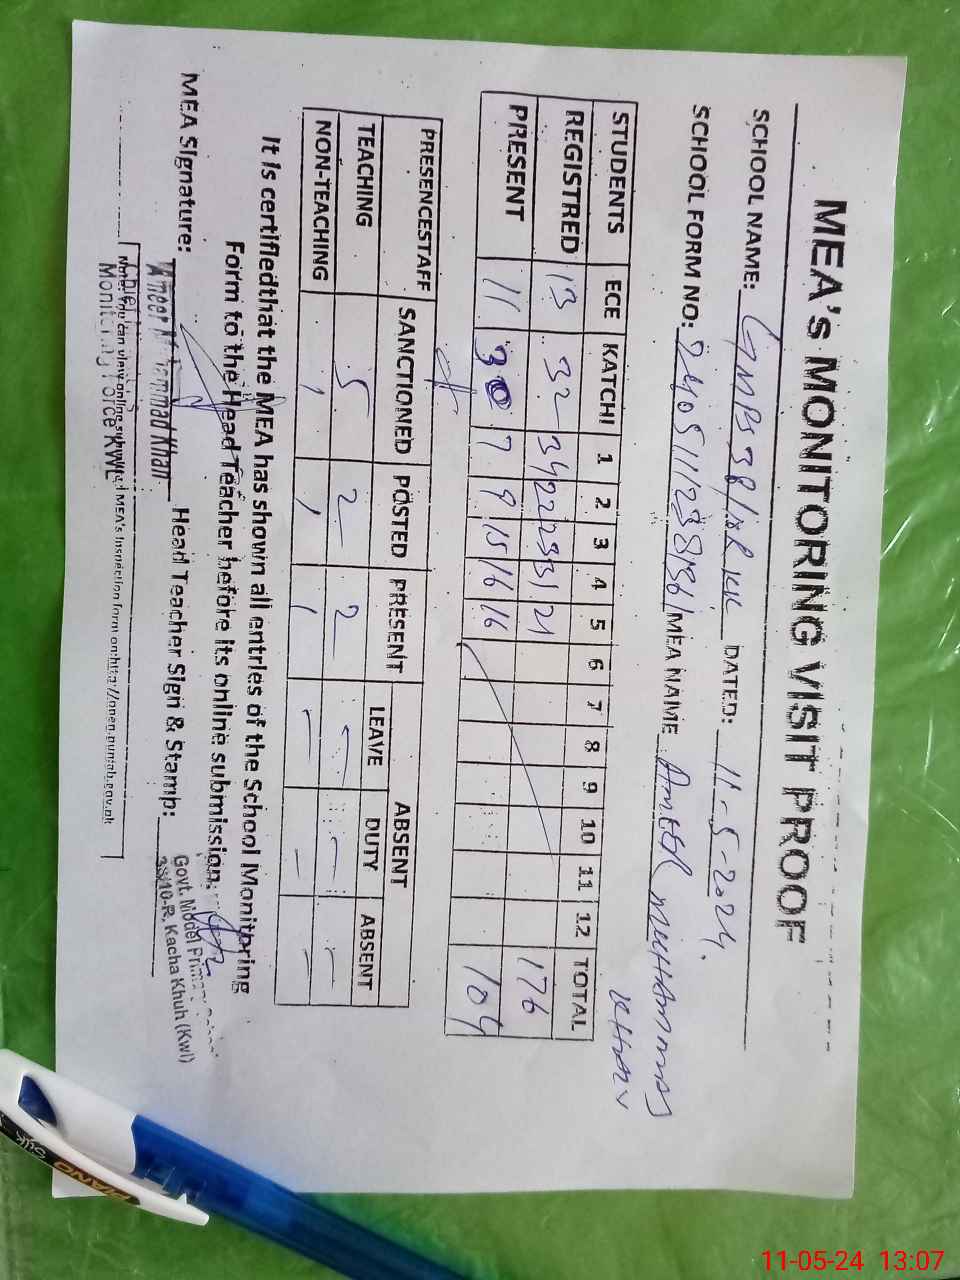 MEA's MONITORING VISIT PROOF
SCHOOL NAME: GMPS 38/10R KK DATED: 11-5-2024.
SCHOOL FORM NO: MEA NAME AMEER MUHAMMAD KHAN
STUDENTS ECE KATCHI 1 2 3 4 5 6 7 8 9 10 11 12 TOTAL
REGISTRED 13 32 34 22 23 31 21 176
PRESENT 11 30 7 9 15 16 16 104
PRESENCESTAFF SANCTIONED POSTED PRESENT ABSENT
LEAVE DUTY ABSENT
TEACHING 5 2 2 - - -
NON-TEACHING 1 1 1 - - -
It is certifiedthat the MEA has shown all entries of the School Monitoring
Form to the Head Teacher before its online submission.
MEA Signature: Head Teacher Sign & Stamp:
Ameer Muhammad Khan
Monitoring Force KWL
Govt. Model Primary School
38/10-R, Kacha Khuh (Kwl)
Note: You can view online submitted MEA's Inspection form on:http://open.punjab.gov.pk
PIANO
11-05-24 13:07